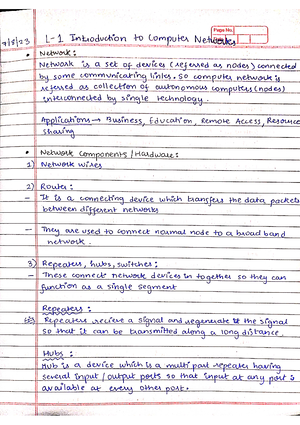 Page No.
9/8/23 L-1 Introduction to Computer Networks
• Network:
Network is a set of devices (referred as nodes) connected
by some communicating links. So computer network is
refered as collection of autonomous computers (nodes)
interconnected by single technology.
Applications → Business, Education, Remote Access, Resource
sharing
• Network Components / Hardware:
1) Network wires
2) Router:
— It is a connecting device which transfers the data packets
between different networks
— They are used to connect normal node to a broad band
network.
3) Repeaters, hubs, switches:
— These connect network devices in together so they can
function as a single segment
Repeaters:
Repeaters recieve a signal and regenerate the signal
so that it can be transmitted along a long distance.
Hubs:
Hub is a device which is a multi port repeater having
several input / output ports so that input at any port is
available at every other port.